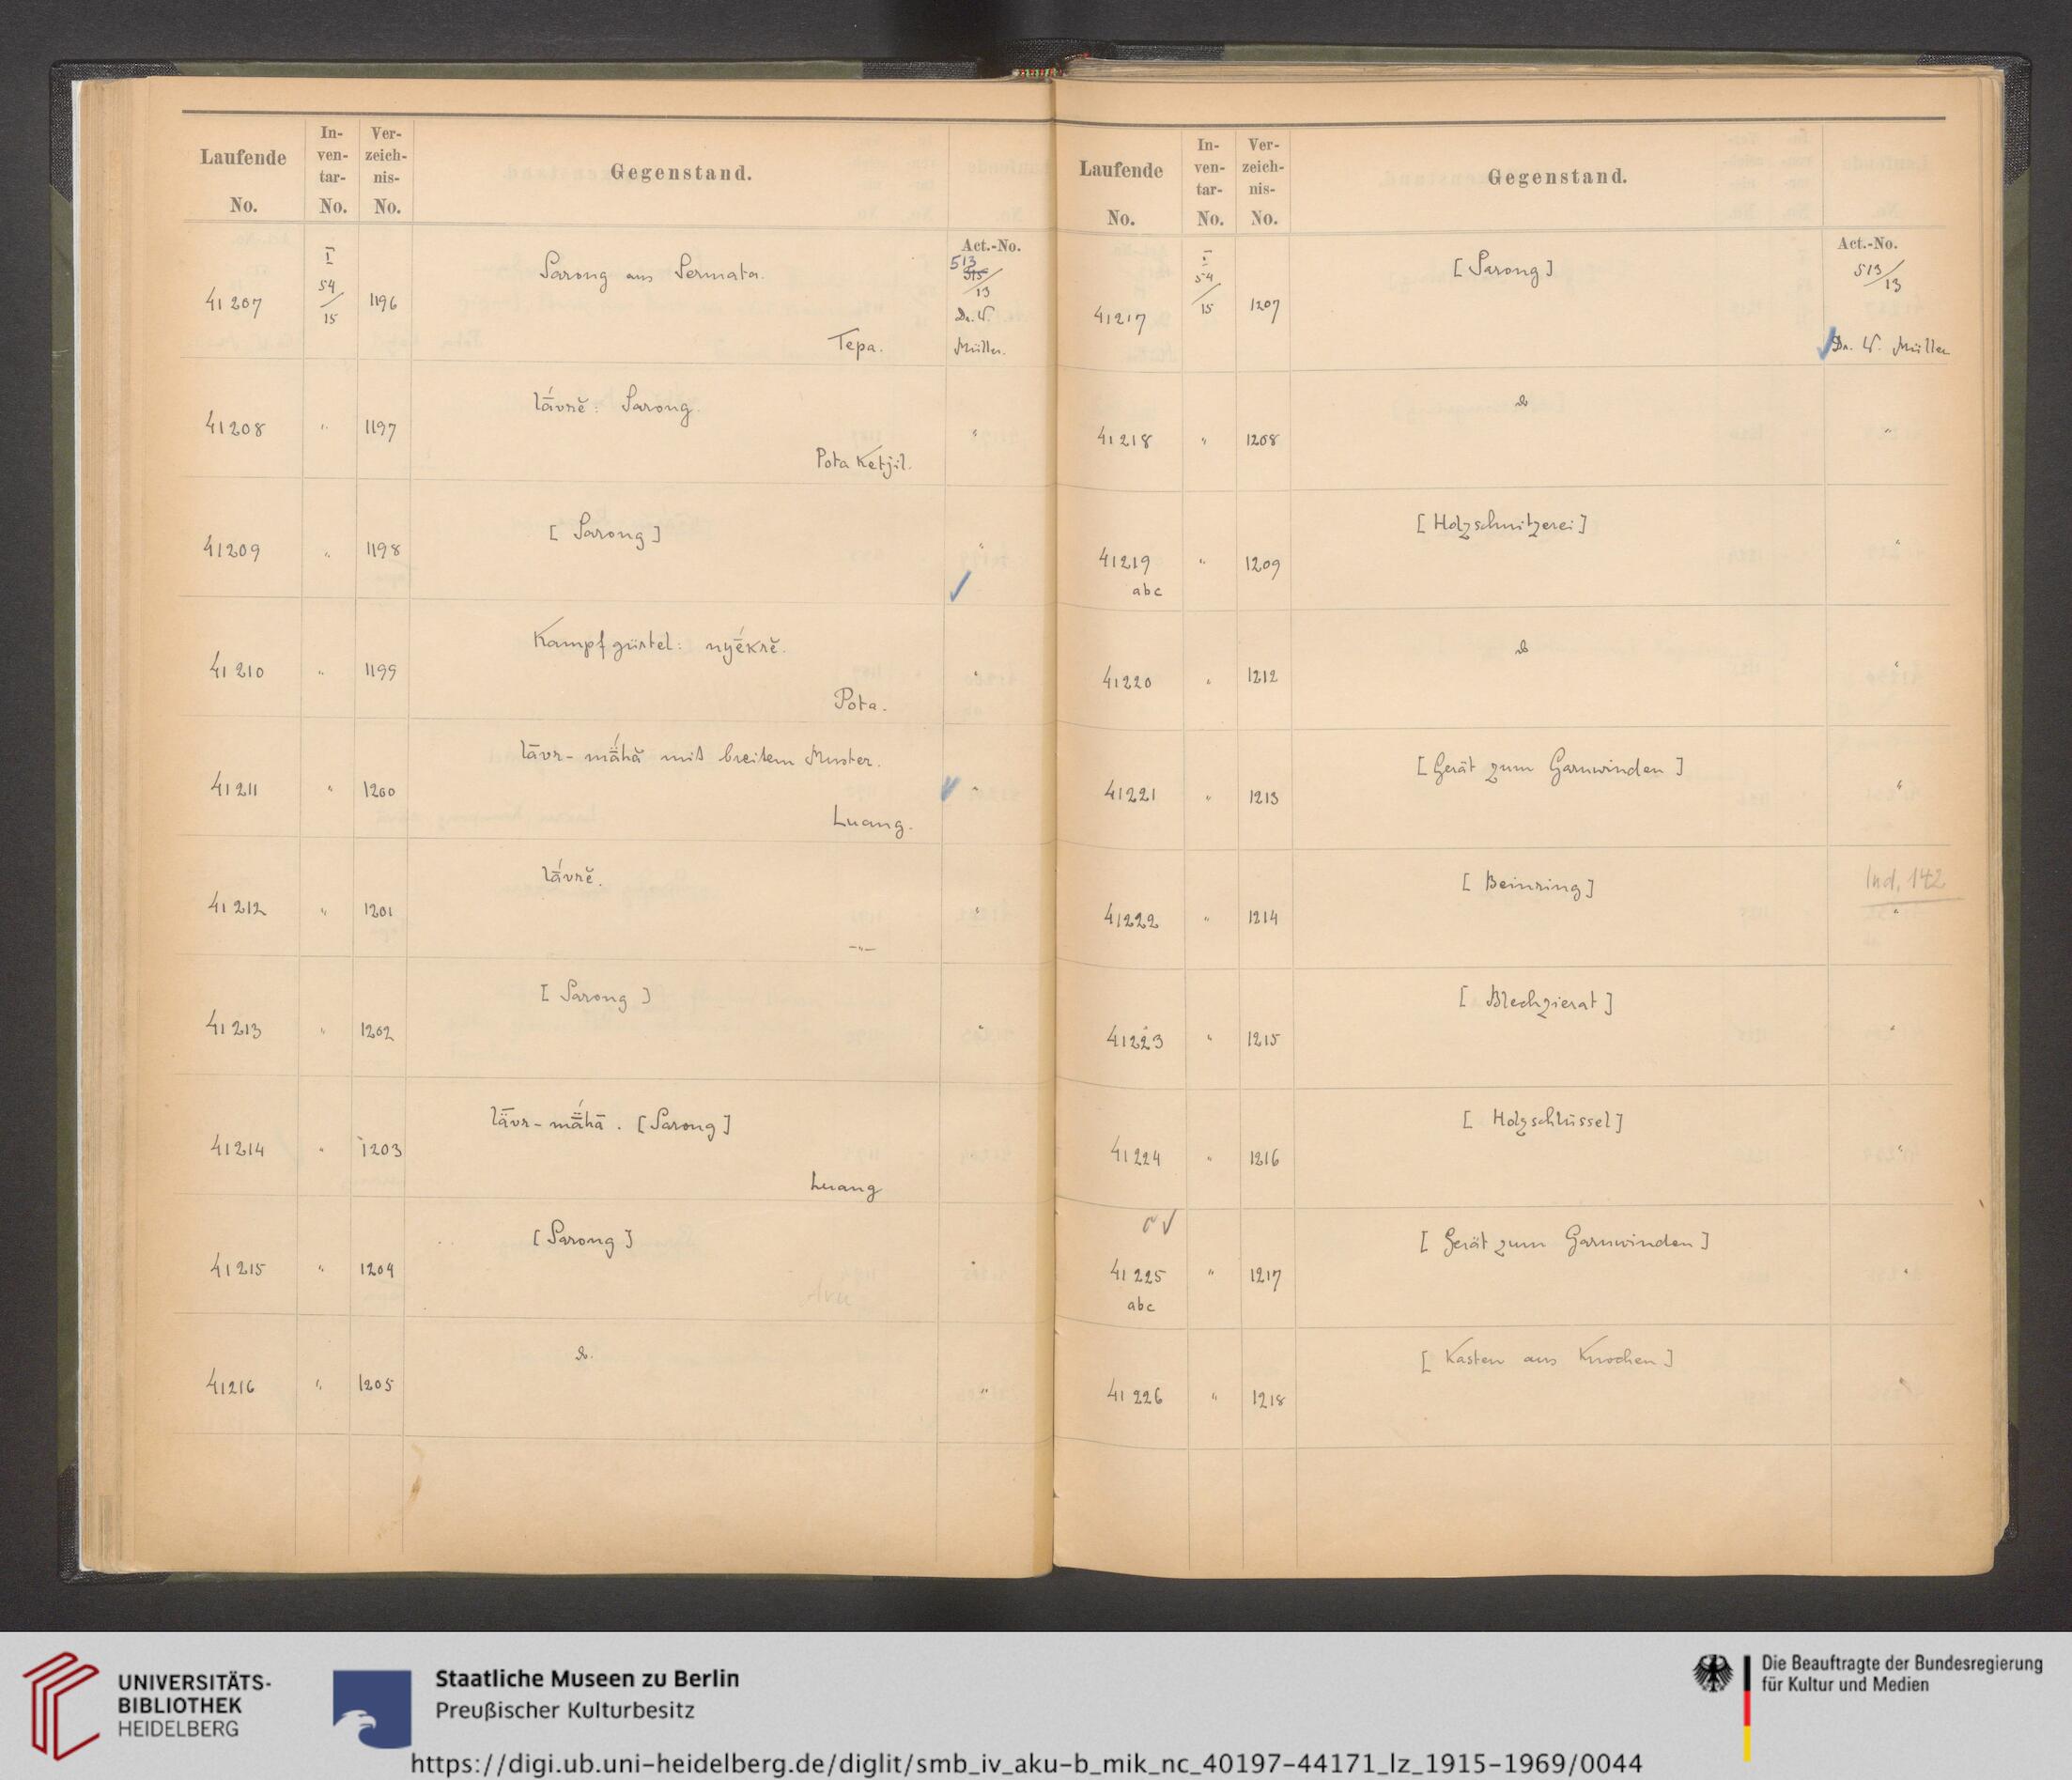 Laufende No. In-ven-tar-No. Ver-zeich-nis-No. Gegenstand.
Act.-No.
41207 I 54/15 1196 Sarong aus Sermata. 513 515/13
Tepa. Dr. W. Müller.
41208 " 1197 lā́vrĕ: Sarong. "
Pota Ketjil.
41209 " 1198 [Sarong] "
✓
41210 " 1199 Kampfgürtel: nyḗkrĕ. "
Pota.
41211 " 1200 lāvr-mä̂hă mit breitem Muster. "
Luang.
41212 " 1201 lā́vrĕ. "
—"—
41213 " 1202 [Sarong] "
41214 " 1203 lǟvr-mä̂hā. [Sarong]
Luang
41215 " 1204 [Sarong] "
41216 " 1205 do. "
Laufende No. In-ven-tar-No. Ver-zeich-nis-No. Gegenstand.
Act.-No.
41217 I 54/15 1207 [Sarong] 513/13
✓ Dr. W. Müller
41218 " 1208 do "
41219 " 1209 [Holzschnitzerei] "
abc
41220 " 1212 do "
41221 " 1213 [Gerät zum Garnwinden] "
41222 " 1214 [Beinring] Ind. 142 "
41223 " 1215 [Blechzierat] "
41224 " 1216 [Holzschlüssel] "
c ✓
41225 " 1217 [Gerät zum Garnwinden] "
abc
41226 " 1218 [Kasten aus Knochen] "
UNIVERSITÄTS-
BIBLIOTHEK
HEIDELBERG
Staatliche Museen zu Berlin
Preußischer Kulturbesitz
Die Beauftragte der Bundesregierung
für Kultur und Medien
https://digi.ub.uni-heidelberg.de/diglit/smb_iv_aku-b_mik_nc_40197-44171_lz_1915-1969/0044